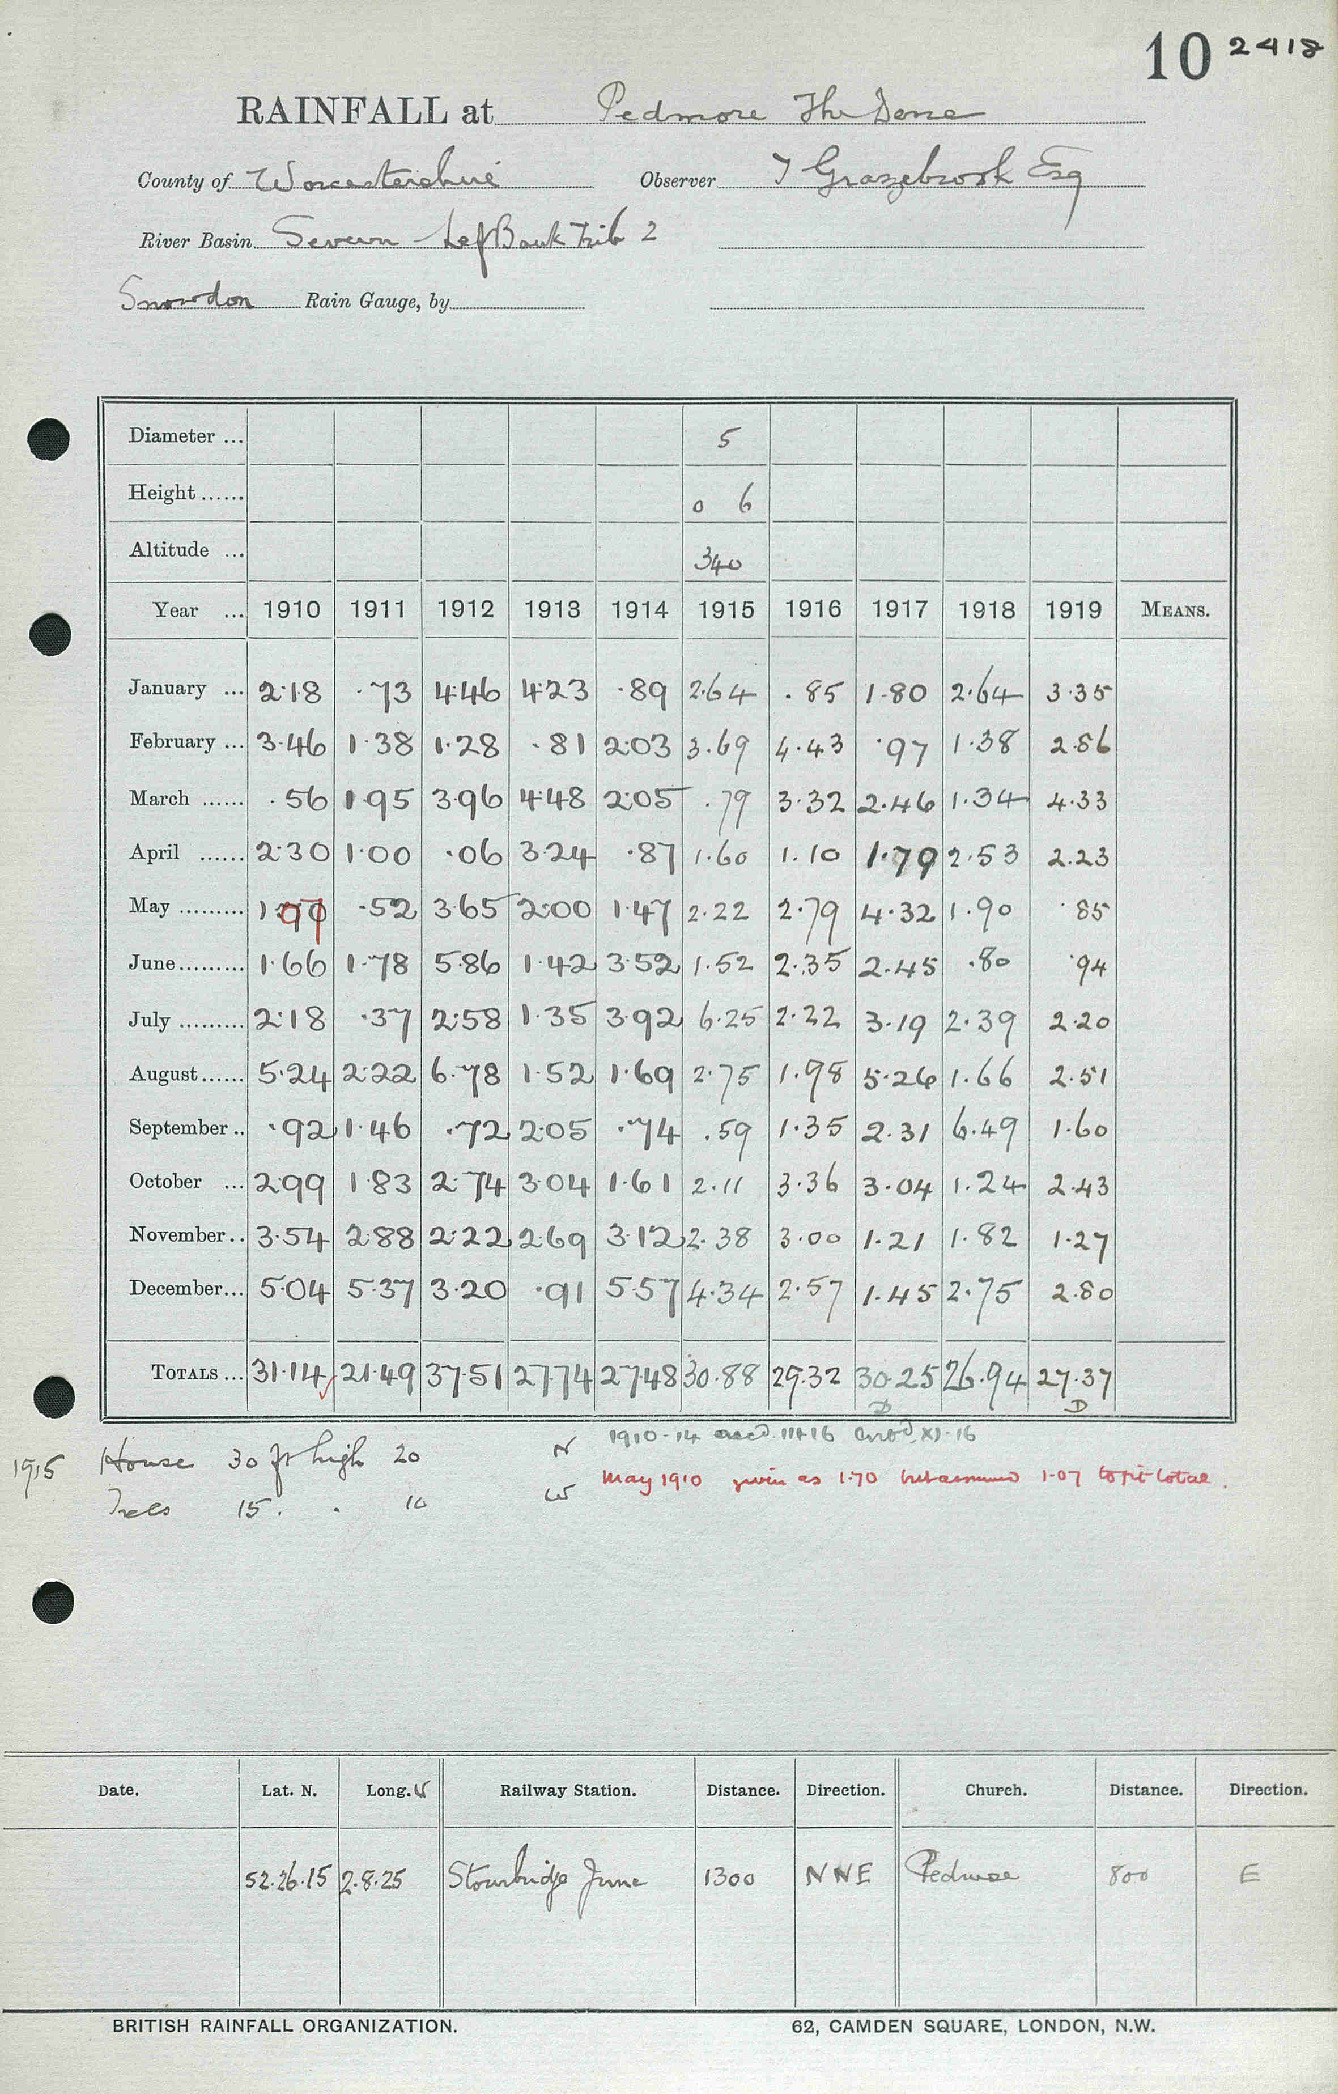 10 2418
RAINFALL at Pedmore The Dene
County of Worcestershire Observer J Grazebrook Esq
River Basin Severn - Left Bank Trib 2
Snowdon Rain Gauge, by
Diameter ... 5
Height ...... 0 6
Altitude ... 340
Year ... 1910 1911 1912 1913 1914 1915 1916 1917 1918 1919 MEANS.
January ... 2·18 ·73 4·46 4·23 ·89 2·64 ·85 1·80 2·64 3·35
February ... 3·46 1·38 1·28 ·81 2·03 3·69 4·43 ·97 1·38 2·86
March ...... ·56 1·95 3·96 4·48 2·05 ·79 3·32 2·46 1·34 4·33
April ...... 2·30 1·00 ·06 3·24 ·87 1·60 1·10 1·79 2·53 2·23
May ......... 1·07 ·52 3·65 2·00 1·47 2·22 2·79 4·32 1·90 ·85
June ......... 1·66 1·78 5·86 1·42 3·52 1·52 2·35 2·45 ·80 ·94
July ......... 2·18 ·37 2·58 1·35 3·92 6·25 2·22 3·19 2·39 2·20
August ...... 5·24 2·22 6·78 1·52 1·69 2·75 1·98 5·26 1·66 2·51
September .. ·92 1·46 ·72 2·05 ·74 ·59 1·35 2·31 6·49 1·60
October ... 2·99 1·83 2·74 3·04 1·61 2·11 3·36 3·04 1·24 2·43
November .. 3·54 2·88 2·22 2·69 3·12 2·38 3·00 1·21 1·82 1·27
December ... 5·04 5·37 3·20 ·91 5·57 4·34 2·57 1·45 2·75 2·80
TOTALS ... 31·14 21·49 37·51 27·74 27·48 30·88 29·32 30·25 26·94 27·37
D D
1910-14 rec'd 11·16 XI·16
1915 House 30 ft high 20 N
May 1910 given as 1·70 but assumed 1·07 to fit total.
Trees 15 · 10 W
Date. Lat. N. Long. W Railway Station. Distance. Direction. Church. Distance. Direction.
52·26·15 2·8·25 Stourbridge Junc 1300 NNE Pedmore 800 E
BRITISH RAINFALL ORGANIZATION. 62, CAMDEN SQUARE, LONDON, N.W.